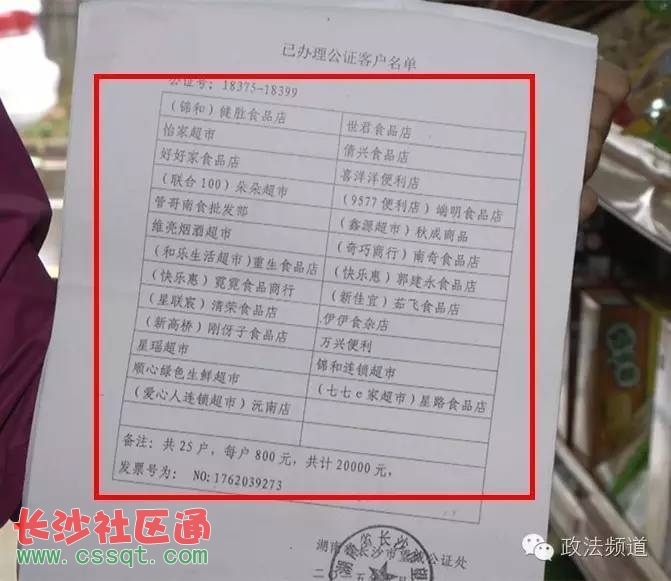 已办理公证客户名单
公证号: 18375-18399
(锦和)健胜食品店 世君食品店
怡家超市 倩兴食品店
好好家食品店 喜洋洋便利店
(联合100)朵朵超市 (9577便利店)端明食品店
管哥南食批发部 (鑫源超市)秋成商品
维亮烟酒超市 (奇巧商行)南奇食品店
(和乐生活超市)重生食品店 (快乐惠)郭建永食品店
(快乐惠)霓霓食品商行 (新佳宜)茹飞食品店
(星联宸)清荣食品店 .伊伊食杂店
(新高桥)刚伢子食品店 万兴便利
星瑶超市 锦和连锁超市
顺心绿色生鲜超市 (七七e家超市)星路食品店
(爱心人连锁超市)沅南店
备注: 共25户, 每户800元, 共计20000元,
发票号为: NO:1762039273
湖南省长沙市望 公证处
二〇 五
省长沙市望
长沙社区通
www.cssqt.com
政法频道